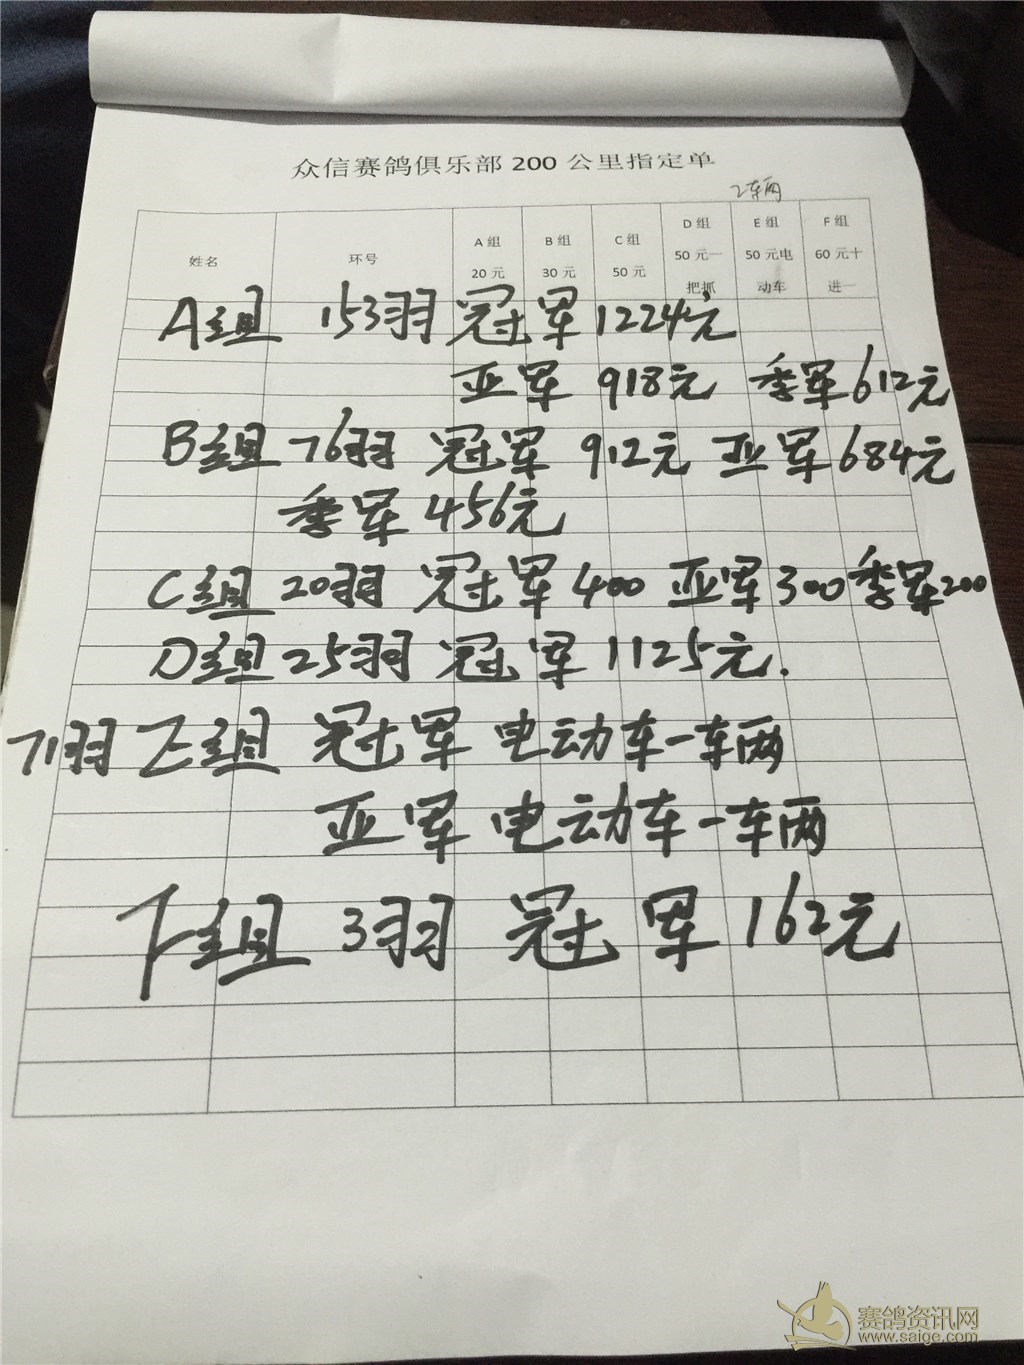 众信赛鸽俱乐部 200 公里指定单
2车两
姓名 环号 A 组 20 元 B 组 30 元 C 组 50 元 D 组 50 元一把抓 E 组 50 元电动车 F 组 60 元十进一
A组 153羽 冠军1224元
亚军 918元 季军612元
B组 76羽 冠军 912元 亚军684元
季军456元
C组 20羽 冠军400 亚军300季军200
D组25羽 冠军1125元.
71羽 E组 冠军 电动车一车两
亚军 电动车一车两
F组 3羽 冠军162元
赛鸽资讯网
www.saige.com